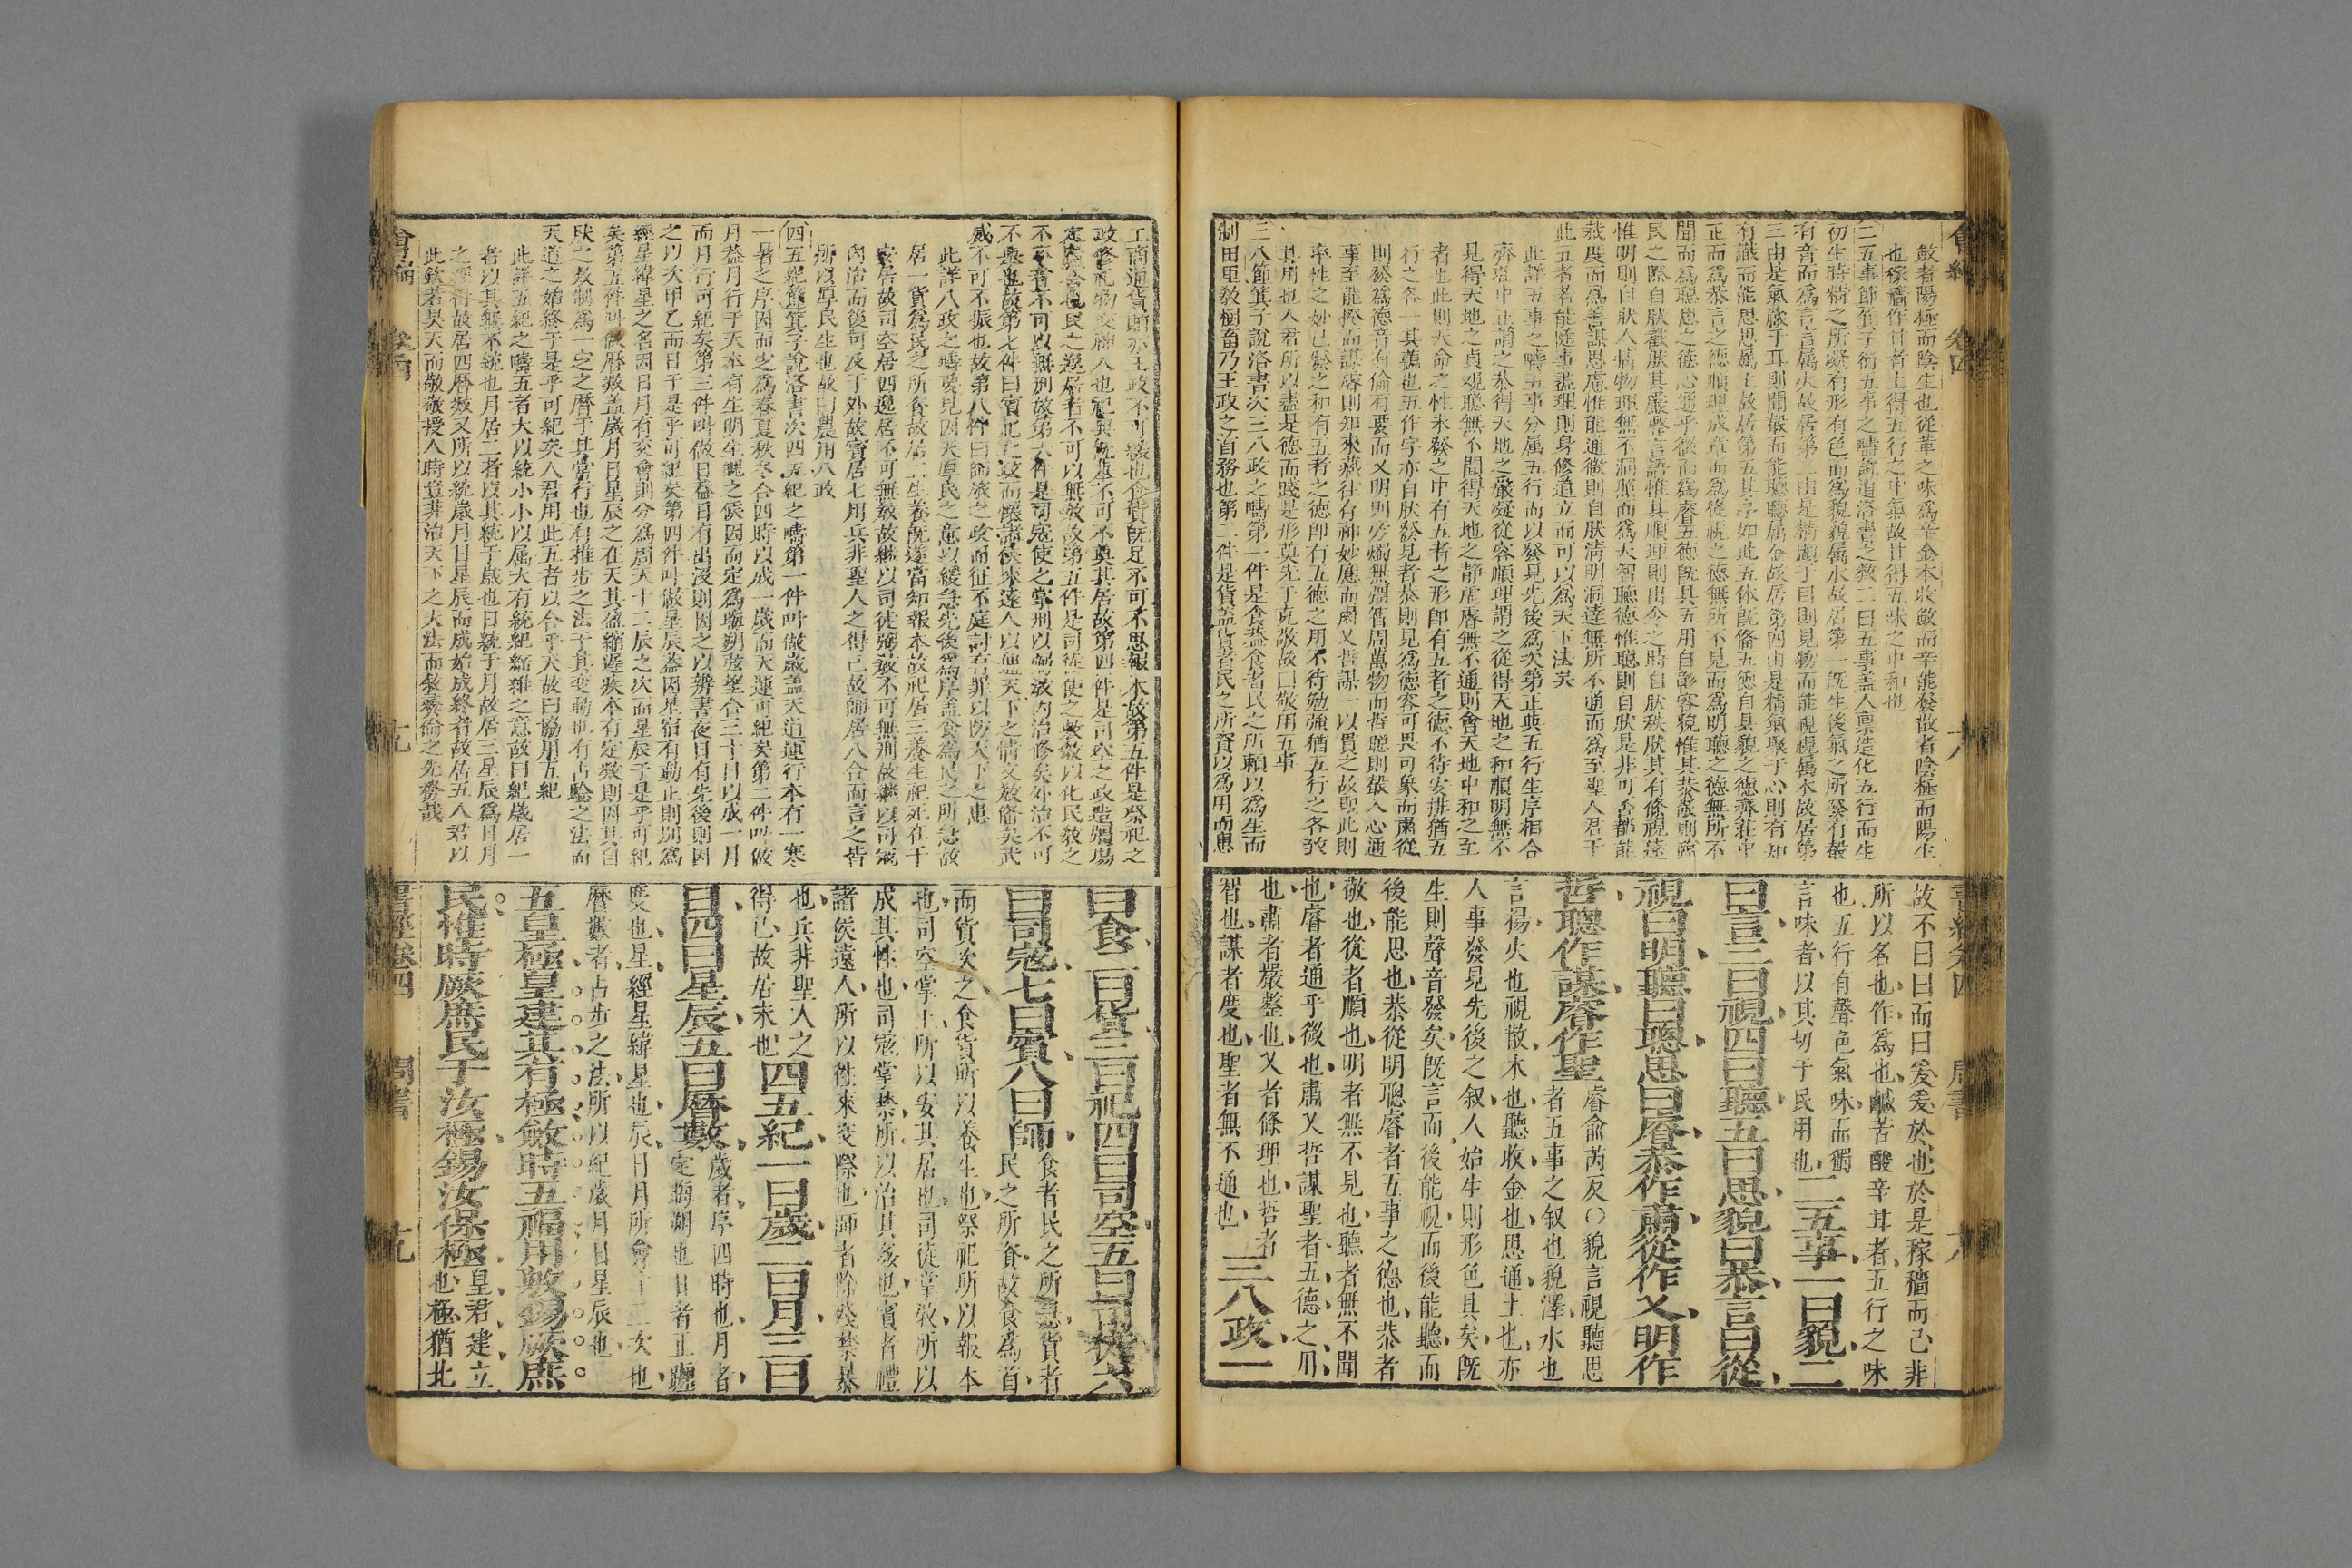 斂者陽極而陰生也從革之味爲辛金本收斂而辛能發散者陰極而陽生
也稼穡作甘者土得五行之中氣故甘得五味之中和也
二五事節箕子衍五事之疇說道洛書之數二曰五事盖人禀造化五行而生
初生時精之所凝有形有色而爲貌貌属水故居第一旣生後氣之所發有聲
有音而爲言言属火故居第二由是精顯于目則見物而能視視属木故居第
三由是氣藏于耳則聞聲而能聽聽属金故居第四由是精氣聚于心則有知
有識而能思思属土故居第五其序如此五体旣備五德自具貌之德齊莊中
正而爲恭言之德順理成章而爲從視之德無所不見而爲明聽之德無所不
聞而爲聰思之德心通乎微而爲睿五德旣具五用自彰容貌惟其恭敬則論
民之際自肰截肰其嚴整言語惟其順理則出令之時自肰秩肰其有條視遠
惟明則自肰人情物理無不洞照而爲大智聽德惟聰則自肰是非可否都能
裁度而爲善謀思慮惟能通微則自肰清明洞達無所不通而爲至聖人君于
此五者若能隨事盡理則身修道立而可以爲天下法矣
此詳五事之疇五事分属五行而以發見先後爲次第正與五行生序相合
齊莊中正謂之恭得天地之嚴凝從容順理謂之從得天地之和順明無不
見得天地之貞觀聰無不聞得天地之静虚睿無不通則會天地中和之至
者也此則天命之性未發之中有五者之形卽有五者之德不待安排猶五
行之各一其藴也五作字亦自肰發見者恭則見爲德容可畏可象而肅從
則發爲德音有倫有要而乂明則旁燭無疆智周萬物而哲聰則聲入心通
事至能揆而謀睿則知來藏往有神妙應而肅乂哲謀一以貫之故聖此則
率性之妙已發之和有五者之德卽有五德之用不待勉強猶五行之各致
其用也人君所以盡是德而踐是形莫先于克敬故曰敬用五事
三八節箕子說洛書次三八政之疇第一件是食盖食者民之所賴以爲生而
制田里敎樹畜乃王政之首務也第二件是貨盖貨者民之所資以爲用而惠
故不曰曰而曰爰爰於也於是稼穡而已非
所以名也作爲也鹹苦酸辛甘者五行之味
也五行有聲色氣味而獨
言味者以其切于民用也
二五事一曰貌二
曰言三曰視四曰聽五曰思貌曰恭言曰從
視曰明聽曰聰思曰睿恭作肅從作乂明作
哲聰作謀睿作聖
睿俞芮反○貌言視聽思
者五事之叙也貌澤水也
言揚火也視散木也聽收金也思通土也亦
人事發見先後之叙人始生則形色具矣旣
生則聲音發矣旣言而後能視而後能聽而
後能思也恭從明聰睿者五事之德也恭者
敬也從者順也明者無不見也聽者無不聞
也睿者通乎微也肅乂哲謀聖者五德之用
也肅者嚴整也乂者條理也哲者
智也謀者度也聖者無不通也
三八政一
書經卷四 周書 十八
工商通貨財亦王政不可緩也食貨旣足不可不思報本故第三件是祭祀之
不率者不可以無刑故第六件是司寇使之掌刑以弼敎內治修矣外治不可
不舉也故第七件曰賓祀之政而懷諸侯來遠人以通天下之情文敎備矣武
威不可不振也故第八件曰師旅之政而征不庭討有罪以防天下之患
此詳八政之疇要見因天厚民之意以緩急先後爲序盖食爲民之所急故
居一貨爲民之所資故居二生養旣遂當知報本故祀居三養生祀死在于
安居故司空居四逸居不可無敎故繼以司徒弼敎不可無刑故繼以司寇
內治而後可及于外故賓居七用兵非聖人之得已故師居八合而言之皆
所以厚民生也故曰農用八政
四五紀節箕子說洛書次四五紀之疇第一件呌做歲盖天道運行本有一寒
一暑之序因而定爲春夏秋冬合四時以成一歲而天運可紀矣第二件呌做
月盖月行于天本有生明生魄之候因而定爲晦朔弦望合三十日以成一月
而月行可紀矣第三件呌做日盖日有出沒則因之以辨晝夜日有先後則因
之以次甲乙而日于是乎可紀矣第四件呌做星辰盖因星宿有動止則別爲
經星緯星之名因日月有交會則分爲周天十二辰之次而星辰于是乎可紀
矣第五件呌做曆數盖歲月日星辰之在天其盈縮遲疾本有定數則因其自
肰之數制爲一定之曆于其常行也有推步之法于其变動也有占驗之法而
天道之始終于是乎可紀矣人君用此五者以合乎天故曰協用五紀
此詳五紀之疇五者大以統小小以属大有統紀綜雜之意故曰紀歲居一
者以其無不統也月居二者以其統于歲也日統于月故居三星辰爲日月
之經得故居四曆數又所以統歲月日星辰而成始成終者故居五人君以
此欽若昊天而敬敬授人時豈非治天下之大法而敘彝倫之先務哉
曰食二曰貨三曰祀四曰司空五曰司徒六
曰司寇七曰賓八曰師
食者民之所急貨者
民之所資故食爲首
而貨次之食貨所以養生也祭祀所以報本
也司空掌土所以安其居也司徒掌敎所以
成其性也司寇掌禁所以治其姦也賓者禮
諸侯遠人所以往來交際也師者除殘禁暴
也兵非聖人之
得已故居末也
四五紀一曰歲二曰月三曰
日四曰星辰五曰曆數
歲者序四時也月者
定晦朔也日者正躔
度也星經星緯星也辰日月所會十二次也
曆數者占步之法所以紀歲月日星辰也
五皇極皇建其有極斂時五福用敷錫厥庶
民惟時厥庶民于汝極錫汝保極
皇君建立
也極猶北
書經卷四 周書 十九